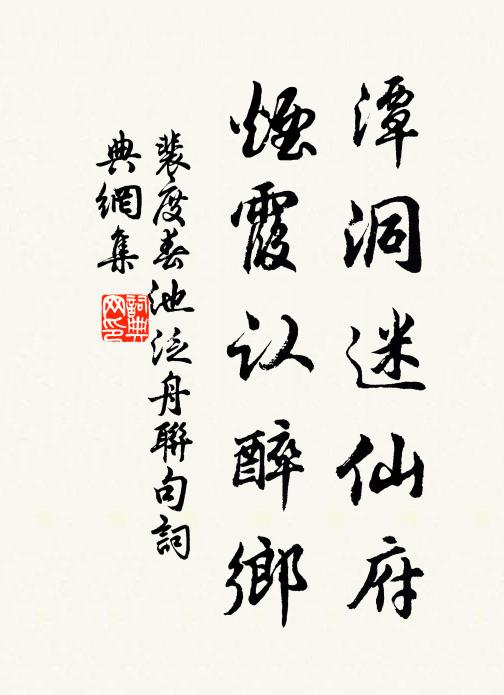 潭洞迷仙府
煙霞认醉鄉
裴度春池泛舟聯句詞
典網集
詞典
网印